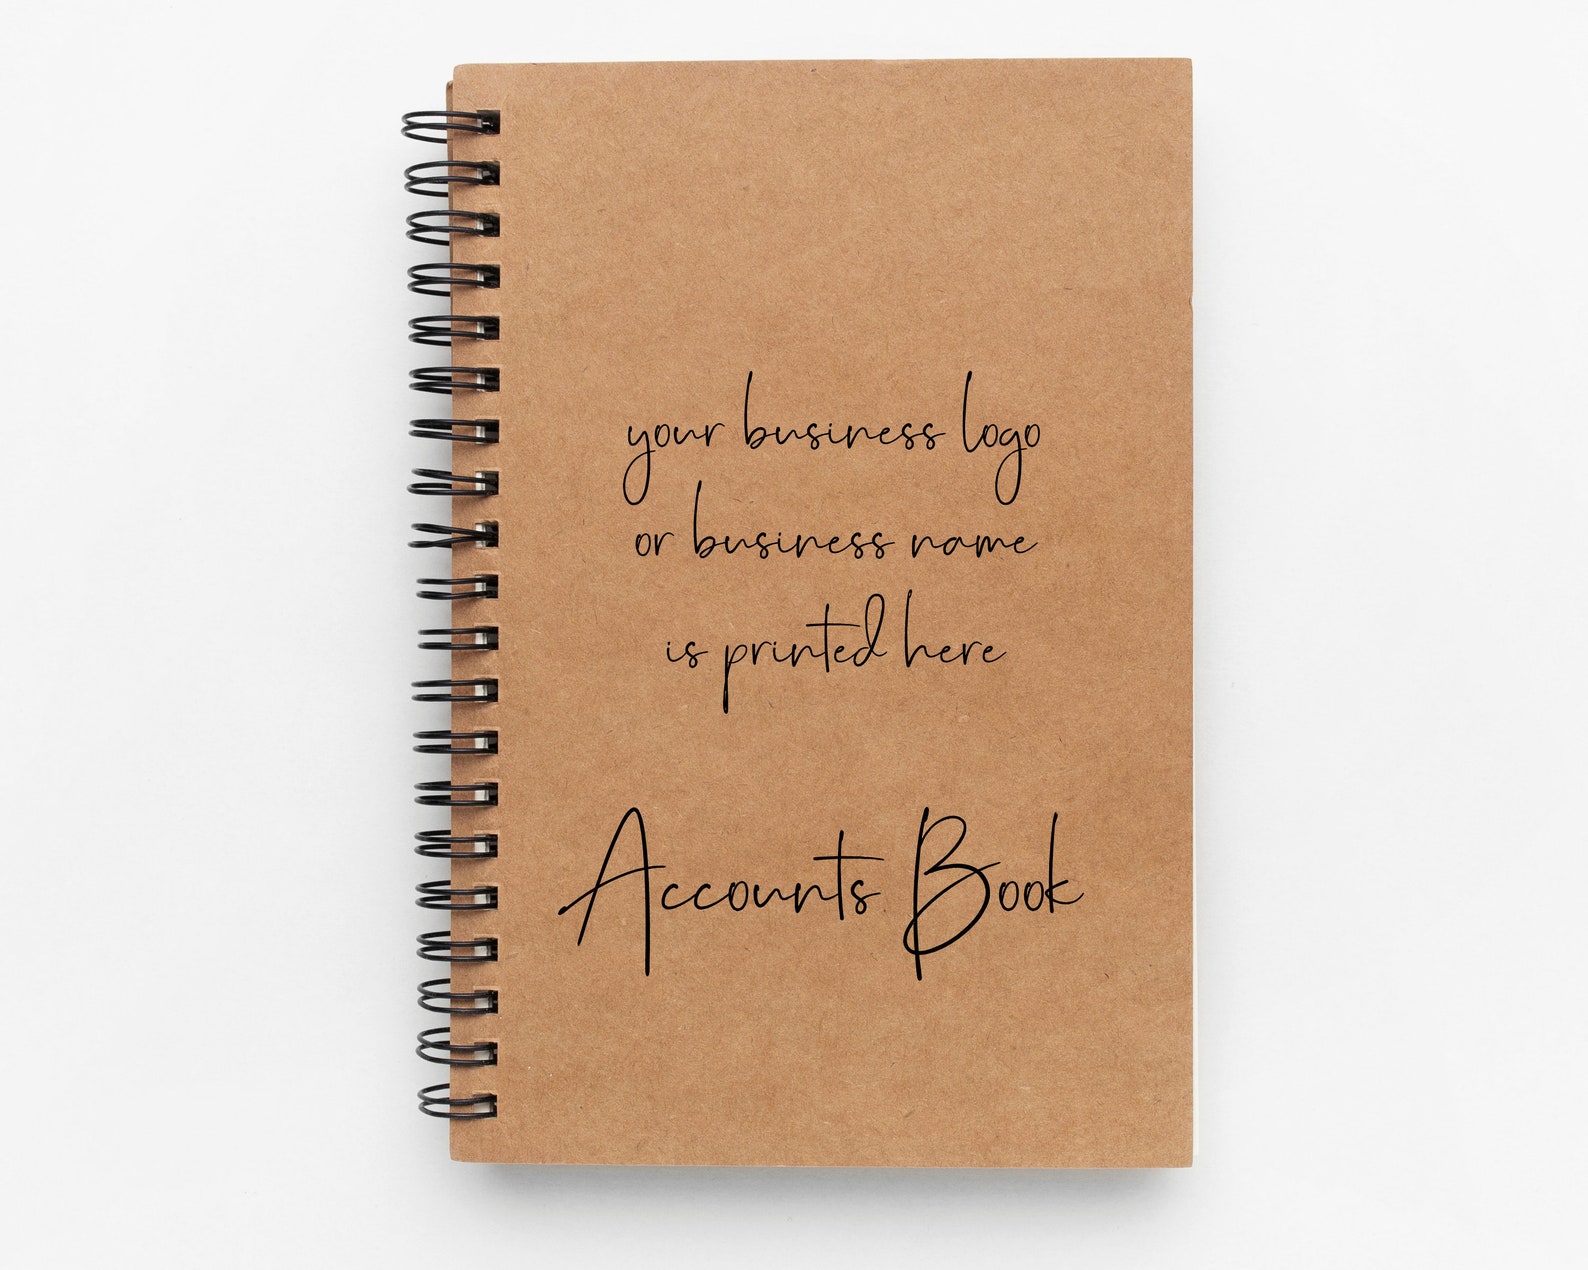 your business logo
or business name
is printed here
Accounts Book